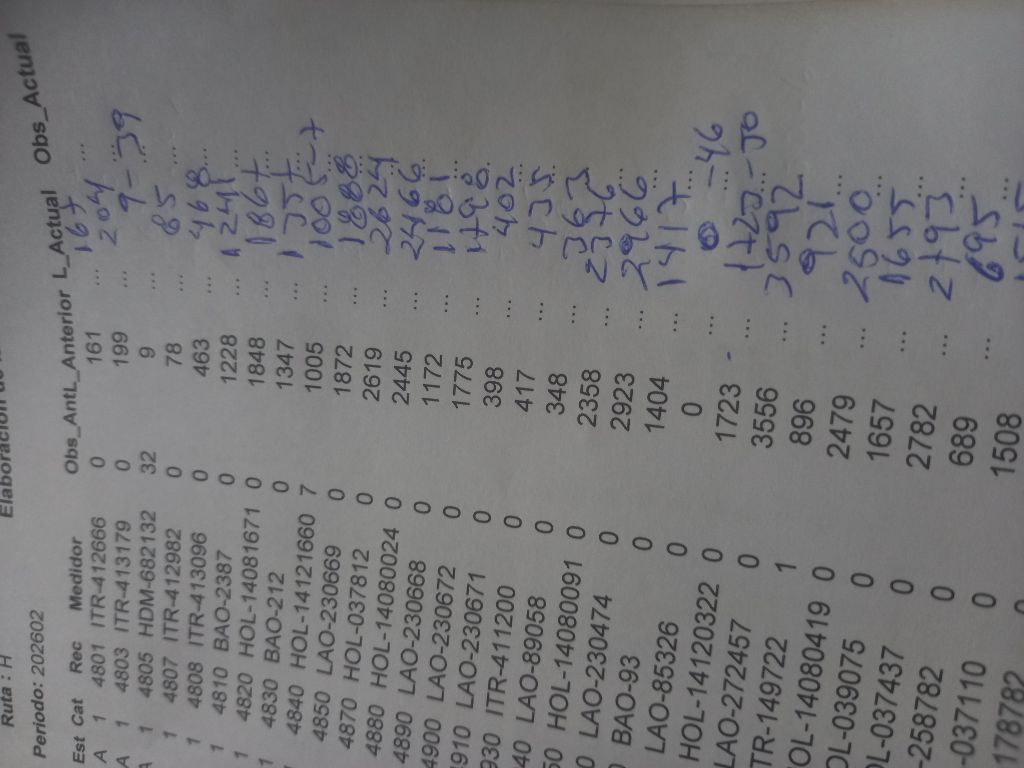 Ruta : H Elaboración de
Periodo: 202602
Est Cat Rec Medidor Obs_Ant L_Anterior L_Actual Obs_Actual
A 1 4801 ITR-412666 0 161 ... 167 ...
A 1 4803 ITR-413179 0 199 ... 204 ...
A 1 4805 HDM-682132 32 9 ... 9 ... -39
1 4807 ITR-412982 0 78 ... 85 ...
1 4808 ITR-413096 0 463 ... 468 ...
1 4810 BAO-2387 0 1228 ... 1241 ...
1 4820 HOL-14081671 0 1848 ... 1867 ...
1 4830 BAO-212 0 1347 ... 1357 ...
4840 HOL-141121660 7 1005 ... 1005 ... -7
4850 LAO-230669 0 1872 ... 1888 ...
4870 HOL-037812 0 2619 ... 2624 ...
4880 HOL-14080024 0 2445 ... 2466 ...
4890 LAO-230668 0 1172 ... 1181 ...
4900 LAO-230672 0 1775 ... 1798 ...
4910 LAO-230671 0 398 ... 402 ...
930 ITR-411200 0 417 ... 435 ...
40 LAO-89058 0 348 ... 363 ...
50 HOL-14080091 0 2358 ... 2376 ...
0 LAO-230474 0 2923 ... 2966 ...
BAO-93 0 1404 ... 1417 ...
LAO-85326 0 0 ... 0 ... -46
HOL-141120322 0 1723 ... 1723 ... -30
LAO-272457 0 3556 ... 3592 ...
TR-149722 1 896 ... 921 ...
OL-14080419 0 2479 ... 2500 ...
OL-039075 0 1657 ... 1655 ...
L-037437 0 2782 ... 2793 ...
-258782 0 689 ... 695 ...
-037110 0 1508
178782 0